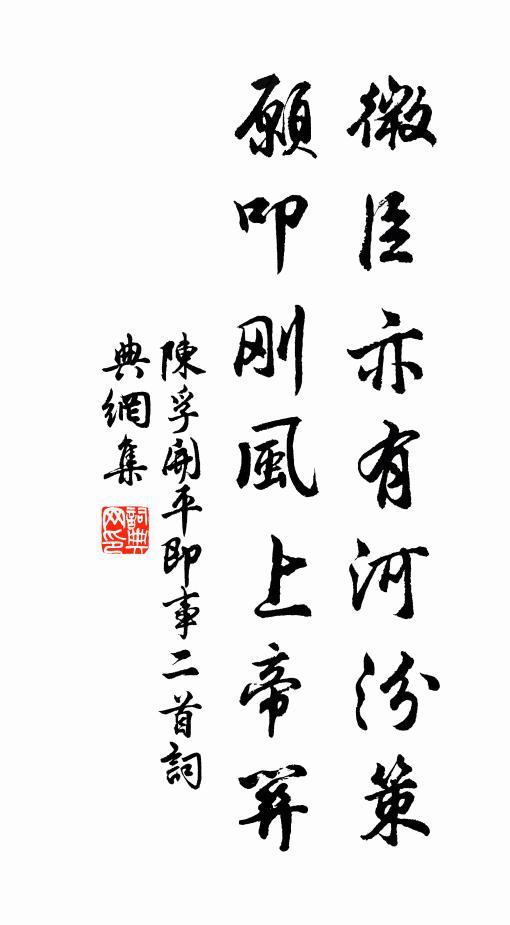 微臣亦有河汾策
願叩刚風上帝關
陳孚開平即事二首詞
典網集
詞典
网印